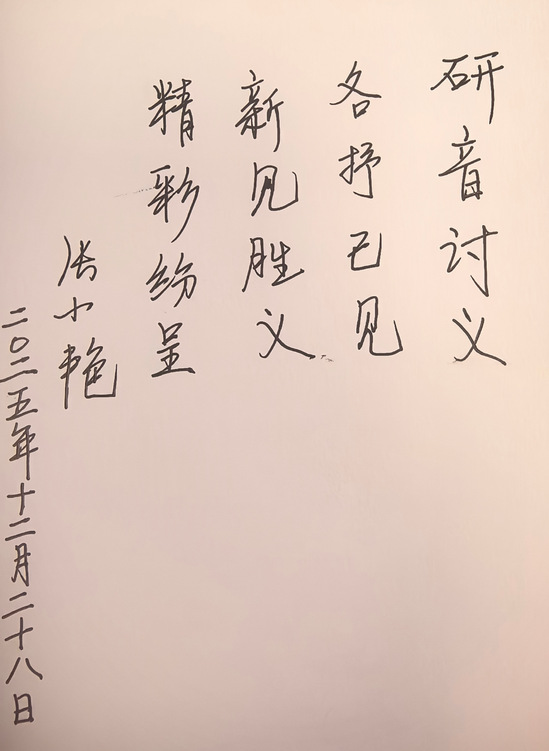 研音讨义
各抒己见
新见胜义
精彩纷呈
张小艳
二〇二五年十二月二十八日